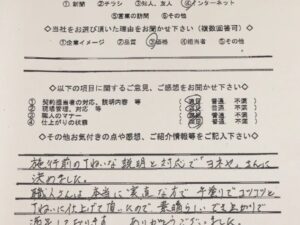 ①新聞 ②チラシ ③知人、友人 ④インターネット
⑤営業の訪問 ⑥その他
◇当社をお選び頂いた理由をお聞かせ下さい(複数回答可)◇
①企業イメージ ②品質 ③価格 ④担当者 ⑤その他
◇以下の項目に関するご意見、ご感想をお聞かせ下さい◇
① 契約担当者の対応、説明内容 等 満足 普通 不満
② 現場管理、対応 等 満足 普通 不満
③ 職人のマナー 満足 普通 不満
④ 仕上がりの状態 満足 普通 不満
◇その他お気付きの点や感想、ご紹介情報等をご記入下さい◇
施行前のていねいな説明と対応で「ヨネヤ」さんに
決めました。
職人さんは本当に実直な方で手塗りでコツコツと
ていねいに仕上げて頂いたので素晴らしい でき上がりで
満足しております ありがとうございました。